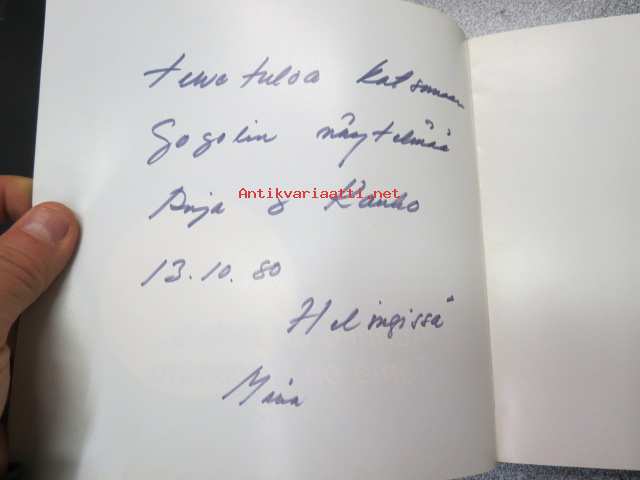 tervetuloa katsomaan
Gogolin näytelmää
Antikvariaatti.net
& Kauko
13.10.80
Helsingissä